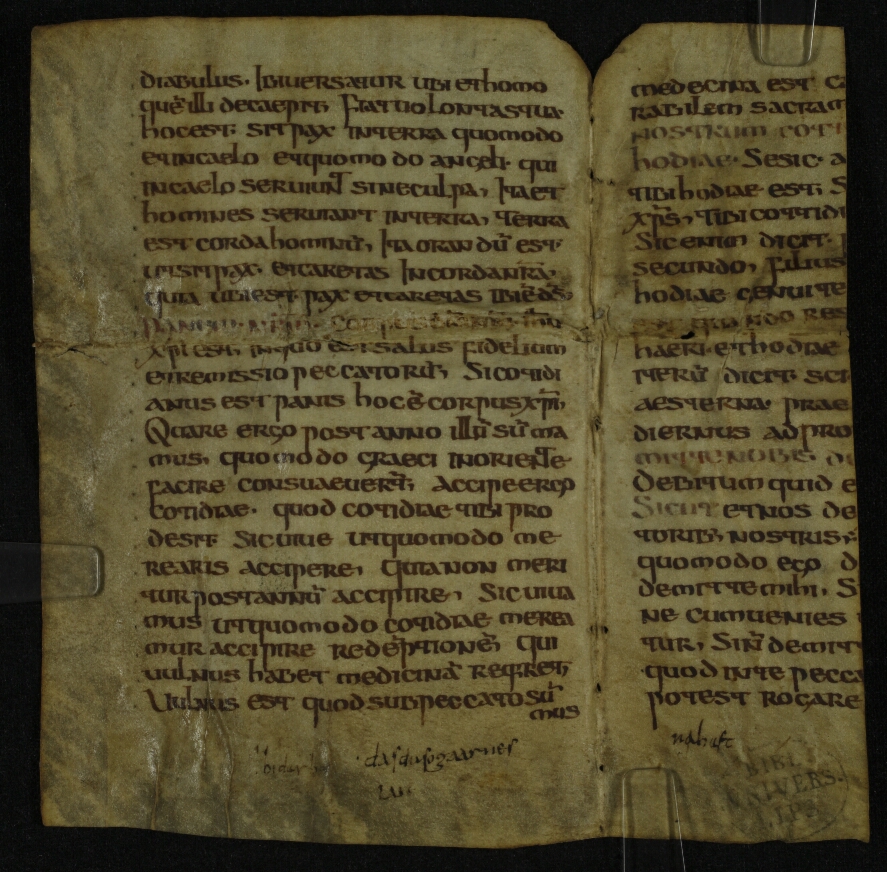 diabulus. Ibiuersatur ubi ethomo
quē illi decaepit; Fiattuolontastua.
hocest. sit pax interra quomodo
etincaelo etquomodo angeli. qui
incaelo seruiunt sineculpa, Itaet
homines seruiant interra, terra
est corda hominū, Ita orandū est.
utsit pax. etcaretas Incordanrā,
quia ubiest pax etcaretas ibiē ds,
xpi est, inquo est salus fidelium
etremissio peccatorū, Sicotidi
anus est panis hocē corpusxpi,
Quare ergo postanno illū sū ma
mus, quomodo graeci inoriente
facire consuaeuert, Accipeergo
cotidiae. quod cotidiae tibi pro
desit Sicuiue utquomodo me
rearis accipere, Quianon meri
tur postannū accipire, Sicuiua
mus utquomodo cotidiae merea
mur accipire redēptionē, qui
uulnus habet medicinā reqret,
Uulnus est quodsubpeccato sū
mus
dasdusogaarnes
medecina est
rabilem sacram
nostrum coti
hodiae. Sesic. a
tibi hodiae est; S
xps, tibi cotidi
Sicenim dicit.
secundo, Filius
hodiae genui te
haeri. ethodiae
iterū dicit. sci
aesterna. prae
diernus adpro
debitum quid e
Sicut etnos de
toribs nostris,
quomodo ego d
demitte mihi, S
ne cumuenies
tur, Sin demit
quod inte pecca
potest rogare
BIBL.
UNIVERS.
LIPS.